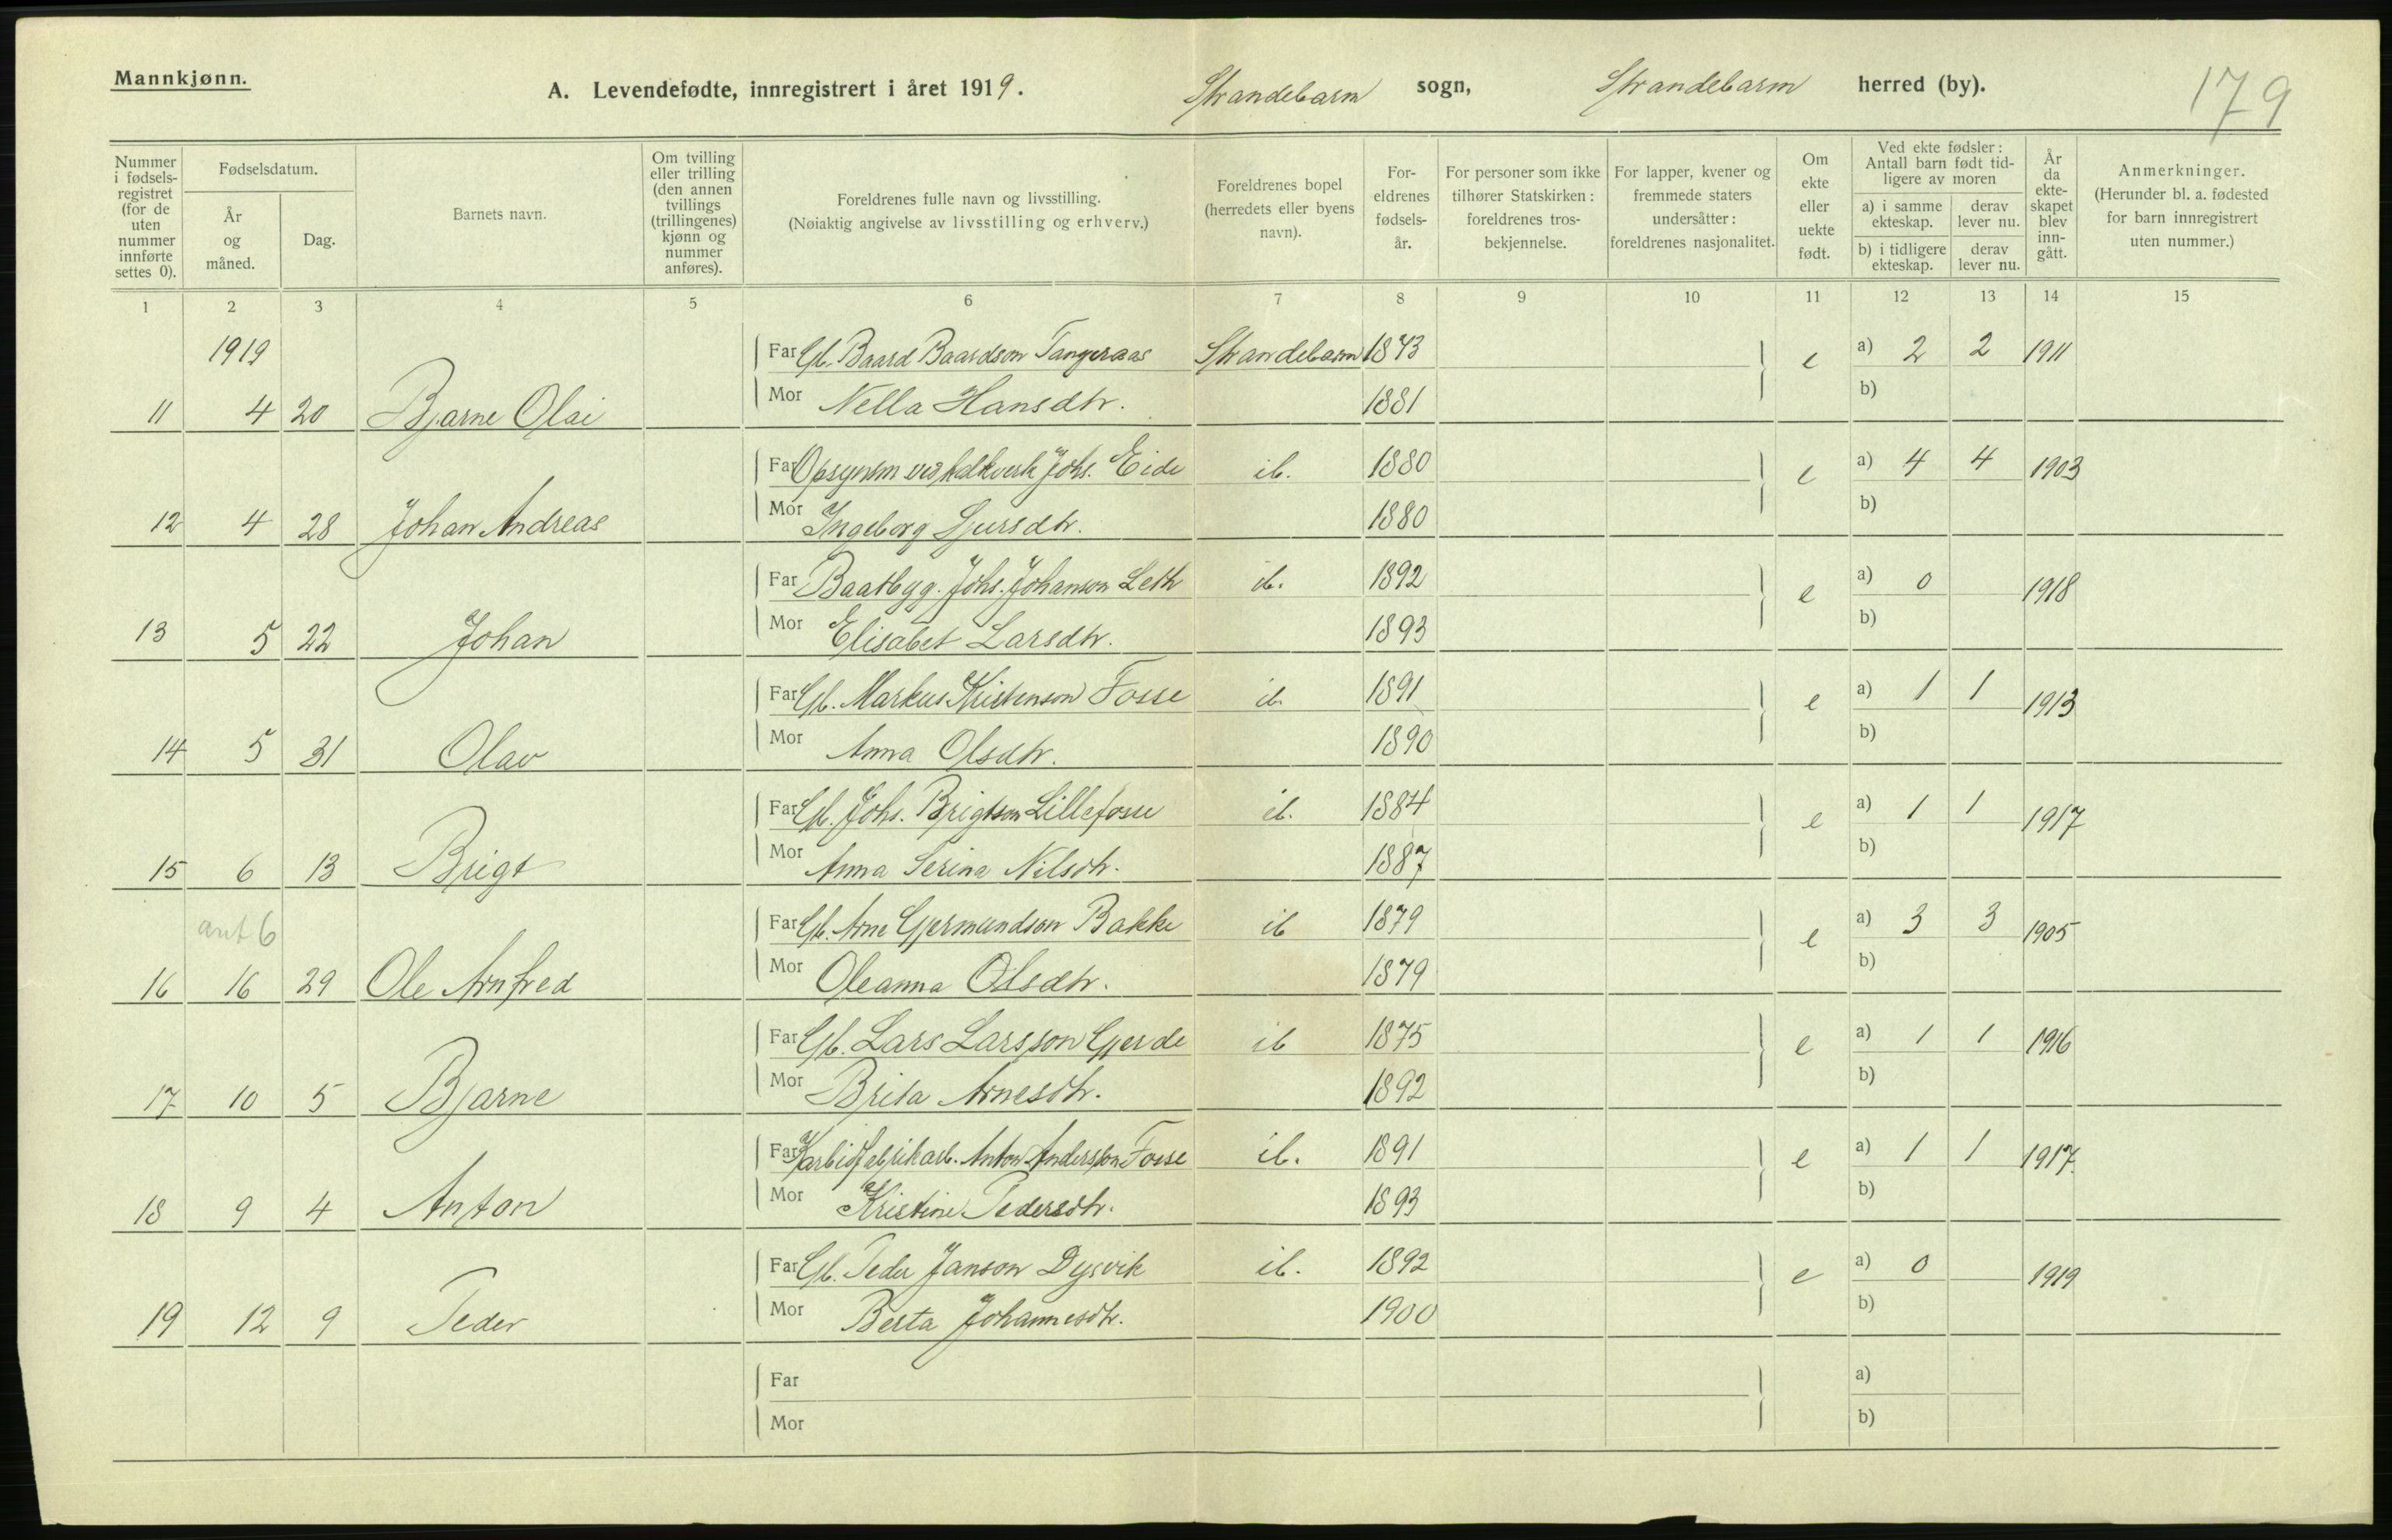 Mannkjønn.
A. Levendefødte, innregistrert i året 1919. Strandebarm sogn, Strandebarm herred (by). 179
Nummer i fødsels-registret (for de uten nummer innførte settes 0).
Fødselsdatum.
År og måned.
Dag.
Barnets navn.
Om tvilling eller trilling (den annen tvillings (trillingenes) kjønn og nummer anføres).
Foreldrenes fulle navn og livsstilling.
(Nøiaktig angivelse av livsstilling og erhverv.)
Foreldrenes bopel (herredets eller byens navn).
For-eldrenes fødsels-år.
For personer som ikke tilhører Statskirken: foreldrenes tros-bekjennelse.
For lapper, kvener og fremmede staters undersåtter: foreldrenes nasjonalitet.
Om ekte eller uekte født.
Ved ekte fødsler: Antall barn født tid-ligere av moren
a) i samme ekteskap.
derav lever nu.
b) i tidligere ekteskap.
derav lever nu.
År da ekte-skapet blev inn-gått.
Anmerkninger.
(Herunder bl. a. fødested for barn innregistrert uten nummer.)
1 2 3 4 5 6 7 8 9 10 11 12 13 14 15
1919 Far Gb. Baard Baardson Tangeraas Strandebarm 1873 e a) 2 2 1911
11 4 20 Bjarne Olai Mor Nella Hansdtr. 1881 b)
Far Opsynsm ved kalkverk Johs. Eide ib. 1880 e a) 4 4 1903
12 4 28 Johan Andreas Mor Ingeborg Sjursdtr. 1880 b)
Far Baatbygg. Johs. Johanson Leth ib. 1892 e a) 0 1918
13 5 22 Johan Mor Elisabet Larsdtr. 1893 b)
Far Gb. Markus Kristenson Fosse ib. 1891 e a) 1 1 1913
14 5 31 Olav Mor Anna Olsdtr. 1890 b)
Far Gb. Johs. Brigtson Lillefosse ib. 1884 e a) 1 1 1917
15 6 13 Brigt Mor Anna Serina Nilsdtr. 1887 b)
ant 6 Far Gb. Arne Gjermundson Bakke ib 1879 e a) 3 3 1905
16 16 29 Ole Arnfred Mor Oleanna Olsdtr. 1879 b)
Far Gb. Lars Larsson Gjerde ib 1875 e a) 1 1 1916
17 10 5 Bjarne Mor Brita Arnesdtr. 1892 b)
Far Karbidfabrikarb. Anton Andersson Fosse ib. 1891 e a) 1 1 1917.
18 9 4 Anton Mor Kristine Pedersdtr. 1893 b)
Far Gb. Peder Janson Dysvik ib. 1892 e a) 0 1919
19 12 9 Peder Mor Berta Johannesdtr. 1900 b)
Far a)
Mor b)